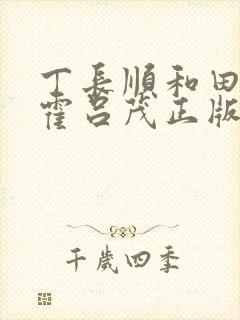 丁長順和田
霍呂茂正版
千歲四季